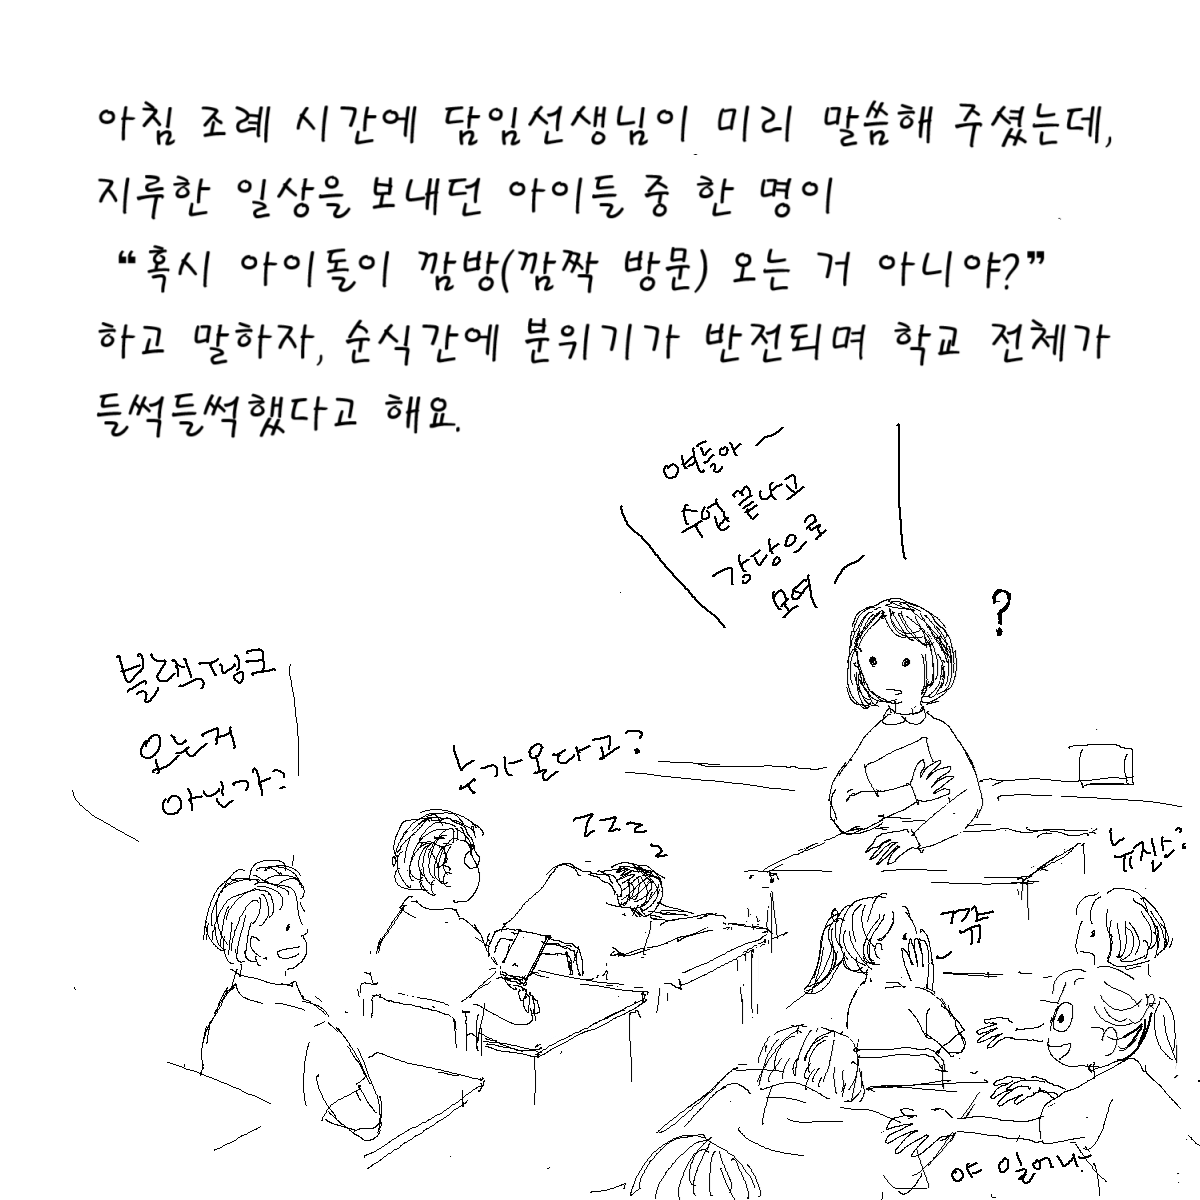 아침 조례 시간에 담임선생님이 미리 말씀해 주셨는데,
지루한 일상을 보내던 아이들 중 한 명이
“혹시 아이돌이 깜방(깜짝 방문) 오는 거 아니야?”
하고 말하자, 순식간에 분위기가 반전되며 학교 전체가
들썩들썩했다고 해요.
얘들아~
수업 끝나고
강당으로
모여~
?
블랙핑크
오는거
아닌가?
누가온다고?
zzzz
뉴진스?
꺅
야 일어나